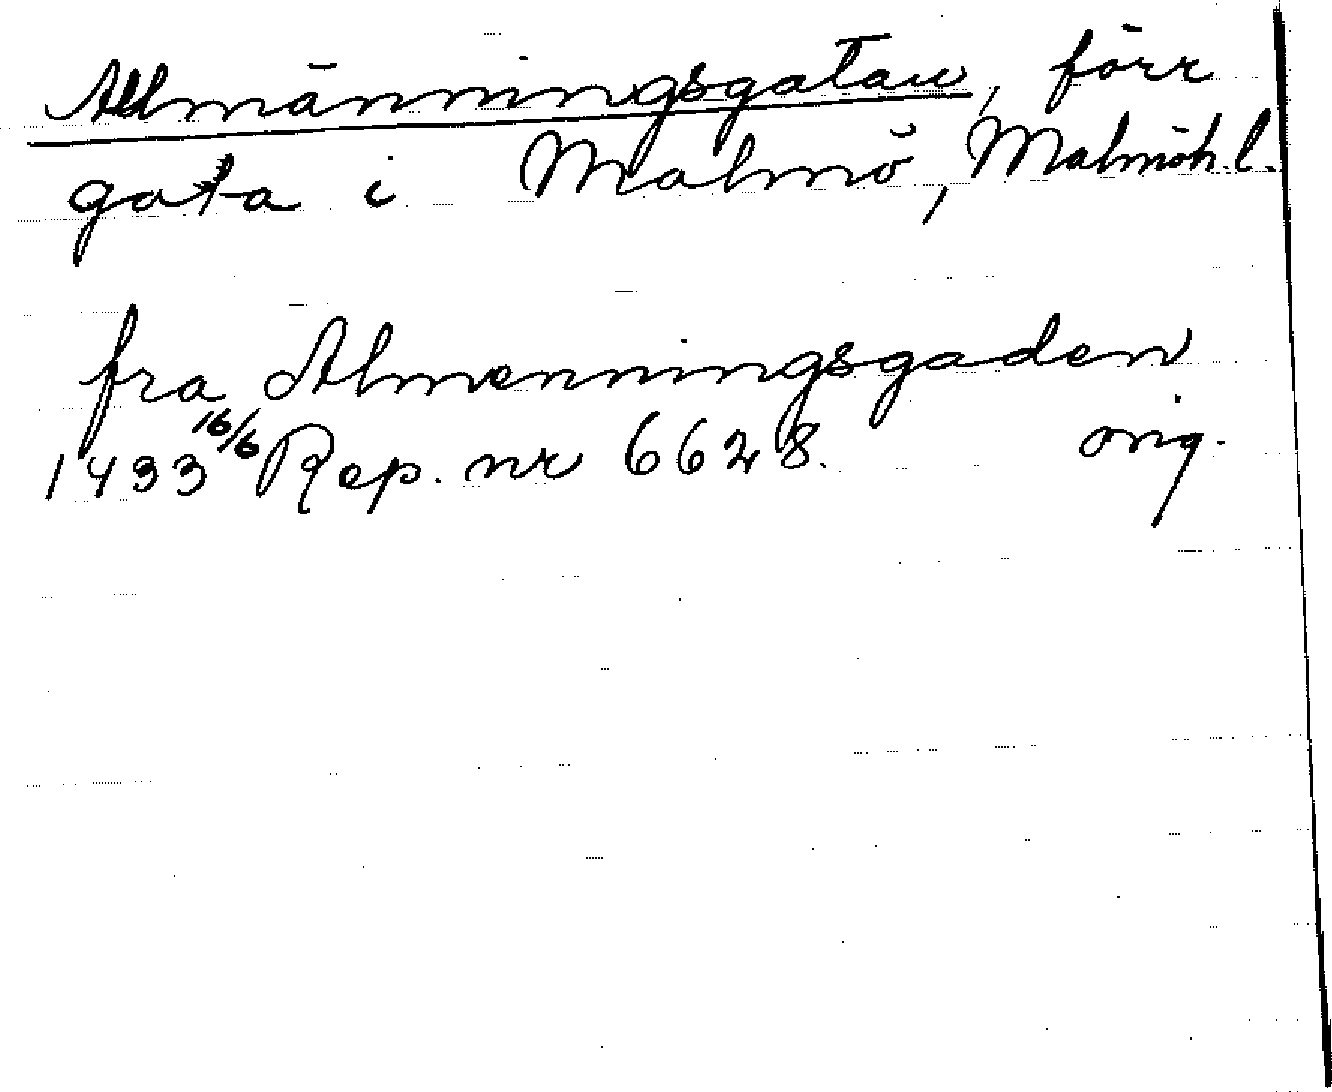 Allmänningsgatan, förr
gata i Malmö, Malmöh. l.
fra Almenningsgaden
1433 16/6 Rep. nr 6628. orig.